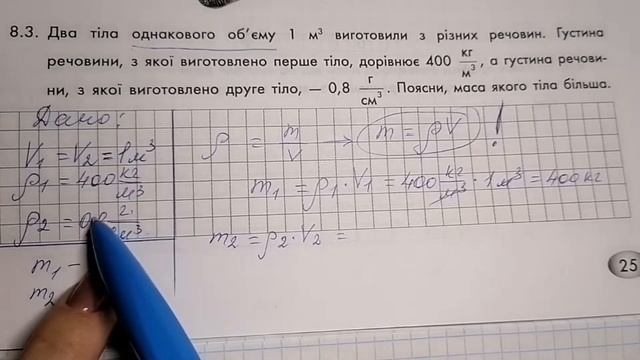 8.3. Два тіла однакового об'єму 1 м³ виготовили з різних речовин. Густина
речовини, з якої виготовлено перше тіло, дорівнює 400 кг/м³, а густина речови-
ни, з якої виготовлено друге тіло, — 0,8 г/см³. Поясни, маса якого тіла більша.
Дано:
V₁ = V₂ = 1м³
ρ₁ = 400 кг/м³
ρ₂ = 0,8 г/см³
m₁ –
m₂
ρ = m/V → m = ρV !
m₁ = ρ₁·V₁ = 400 кг/м³ · 1м³ = 400кг
m₂ = ρ₂·V₂ =
25